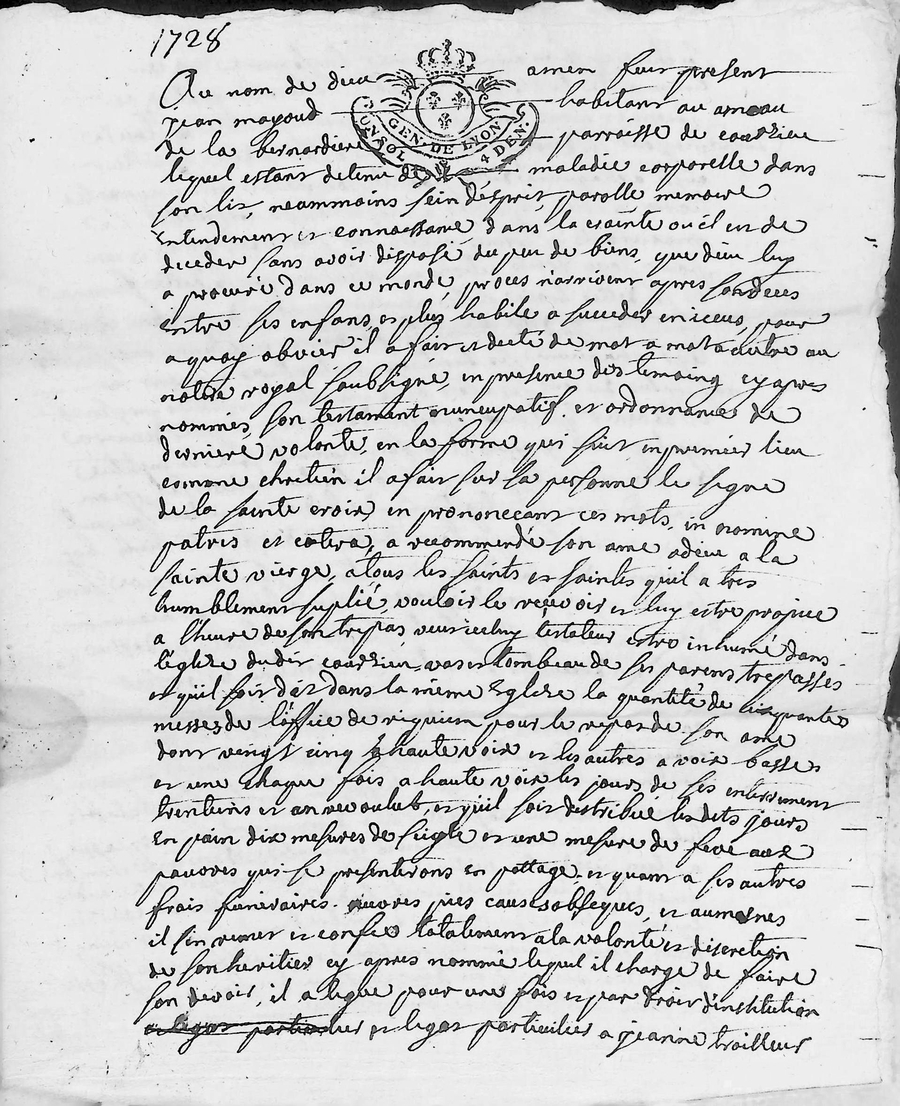 1728
Au nom de dieu amen fut present
jean mayoud habitant au ameau
de la bernardiere parroisse de courzieu
GEN. DE LYON
UN SOL 4 DEN.
lequel estant detenu de maladie corporelle dans
son lit, neammoins sein desprit, parolle memoire
entendement et connoessance dans la crainte ou il est de
deceder sans avoir disposé du peu de biens, que dieu luy
a procuré dans ce monde, proces n'arrivent apres son deces
entre ses enfans et plus habile a succeder en iceux, pour
a quoy obvier il a fait et decté de mot a mot a autre au
notaire royal soubsigné, en presence des temoing cy apres
nommés, son testament nuncupatif. et ordonnance de
derniere volonté, en la forme qui suit en premier lieu
comme chretien il a fait sur sa personne le signe
de la sainte croix, en prononceant ces mots, in nomine
patris et cetera, a recommendé son ame a dieu a la
sainte vierge, a tous les saints et saintes qu'il a tres
humblement suplié, vouloir le reçevoir et luy estre propice
a l'heure de son trepas, veut iceluy testateur estre inhumé dans
l'eglize dudit courzieu vas et tombeau de ses parens trepassés
et qu'il soit dit dans la meme Eglize la quantité de cinquante
messes de l'office de requiem pour le repos de son ame
dont vengt cinq a haute voix et les autres a voix basse
et une chaque fois a haute voix les jours de ses enterrement
trentains et an revoulut, et qu'il soit distribué les dits jours
en pain dix mesures de seigle et une mesure de feve aux
pauvres qui se presenterons en pottage. et quant a ses autres
frais funeraires. euvres pies causes obseques, et aumosnes
il s'en remet et confie totalement a la volonté et discretion
de son heritier cy apres nommé lequel il charge de faire
son devoir, il a legué pour une fois et par droit d'institution
et legat particulier et legat particulier a jeanne trailleur